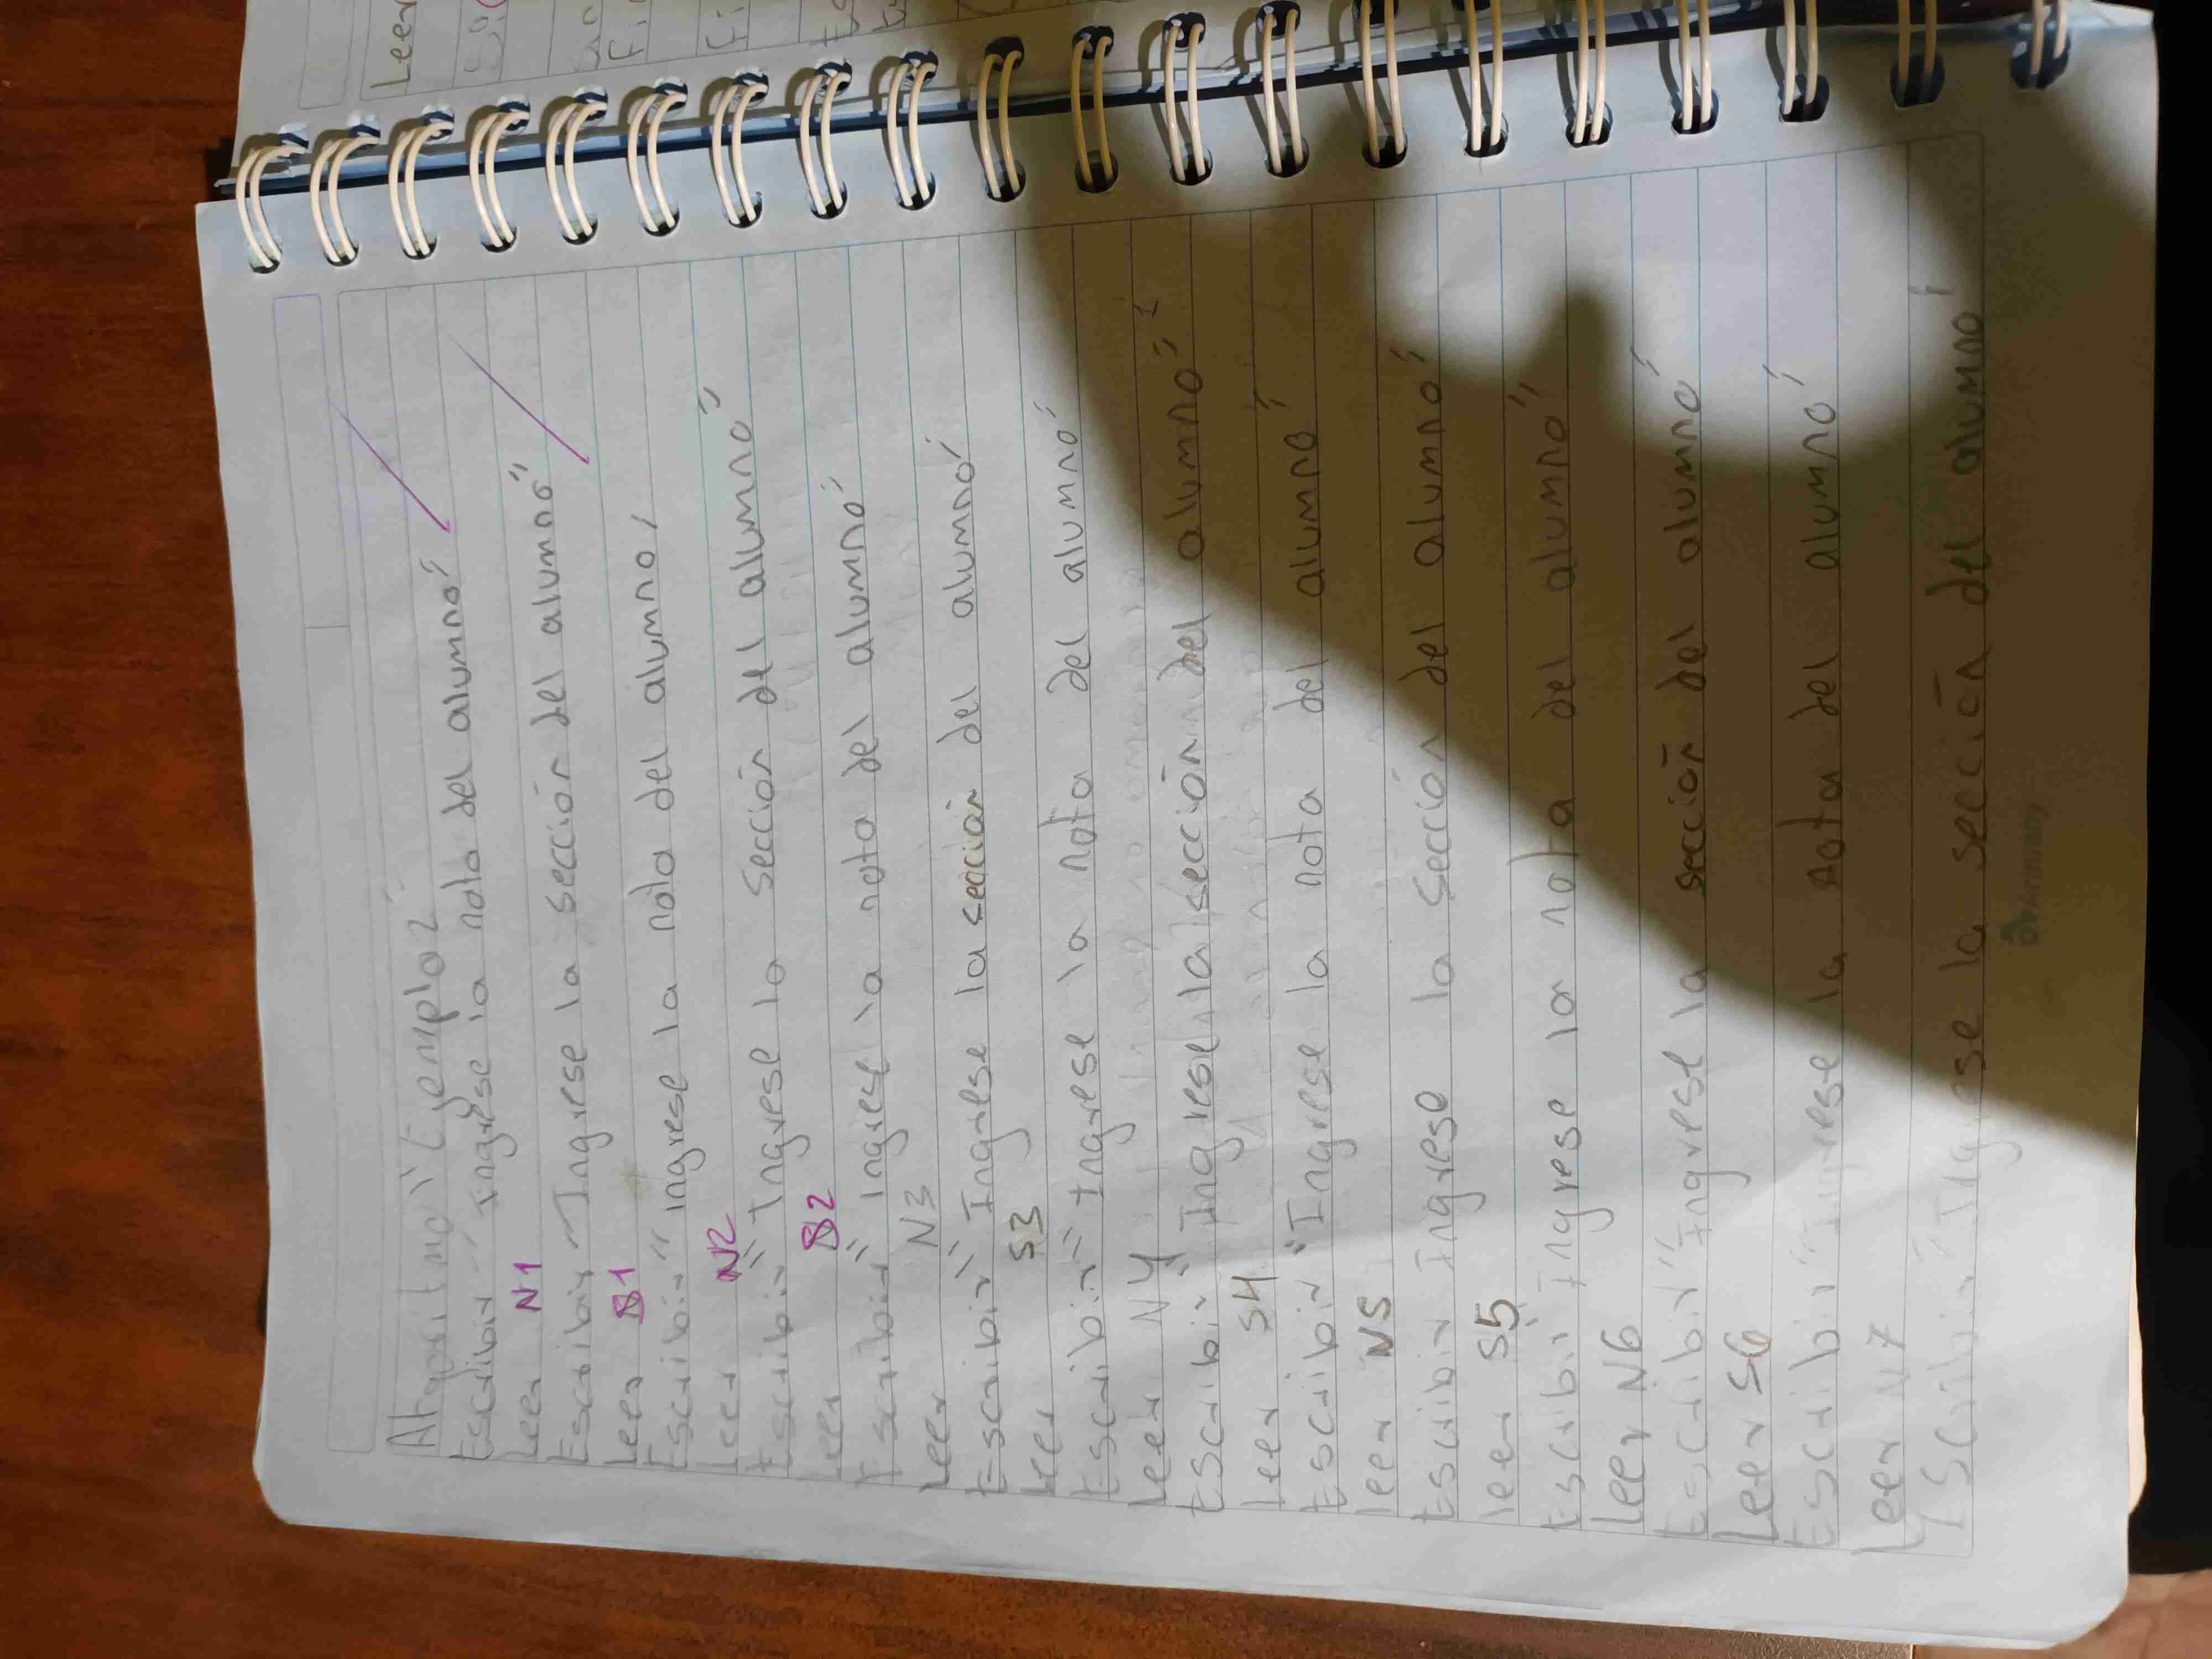 Leer
Algoritmo "Ejemplo2
Escribir "Ingrese la nota del alumno"
Leer N1
Escribir "Ingrese la sección del alumno"
Leer S1
Escribir "ingrese la nota del alumno"
Leer N2
Escribir "Ingrese la sección del alumno"
Leer S2
Escribir "ingrese la nota del alumno"
Leer N3
Escribir "Ingrese la sección del alumno"
Leer S3
Escribir "Ingrese la nota del alumno"
Leer N4
Escribir "Ingrese la sección del alumno"
Leer S4
Escribir "Ingrese la nota del alumno"
leer N5
Escribir Ingrese la sección del alumno"
leer S5
Escribir Ingrese la nota del alumno"
Leer N6
Escribir "Ingrese la sección del alumno"
Leer S6
Escribir "Ingrese la nota del alumno"
Leer N7
Escribir "Ingrese la sección del alumno"